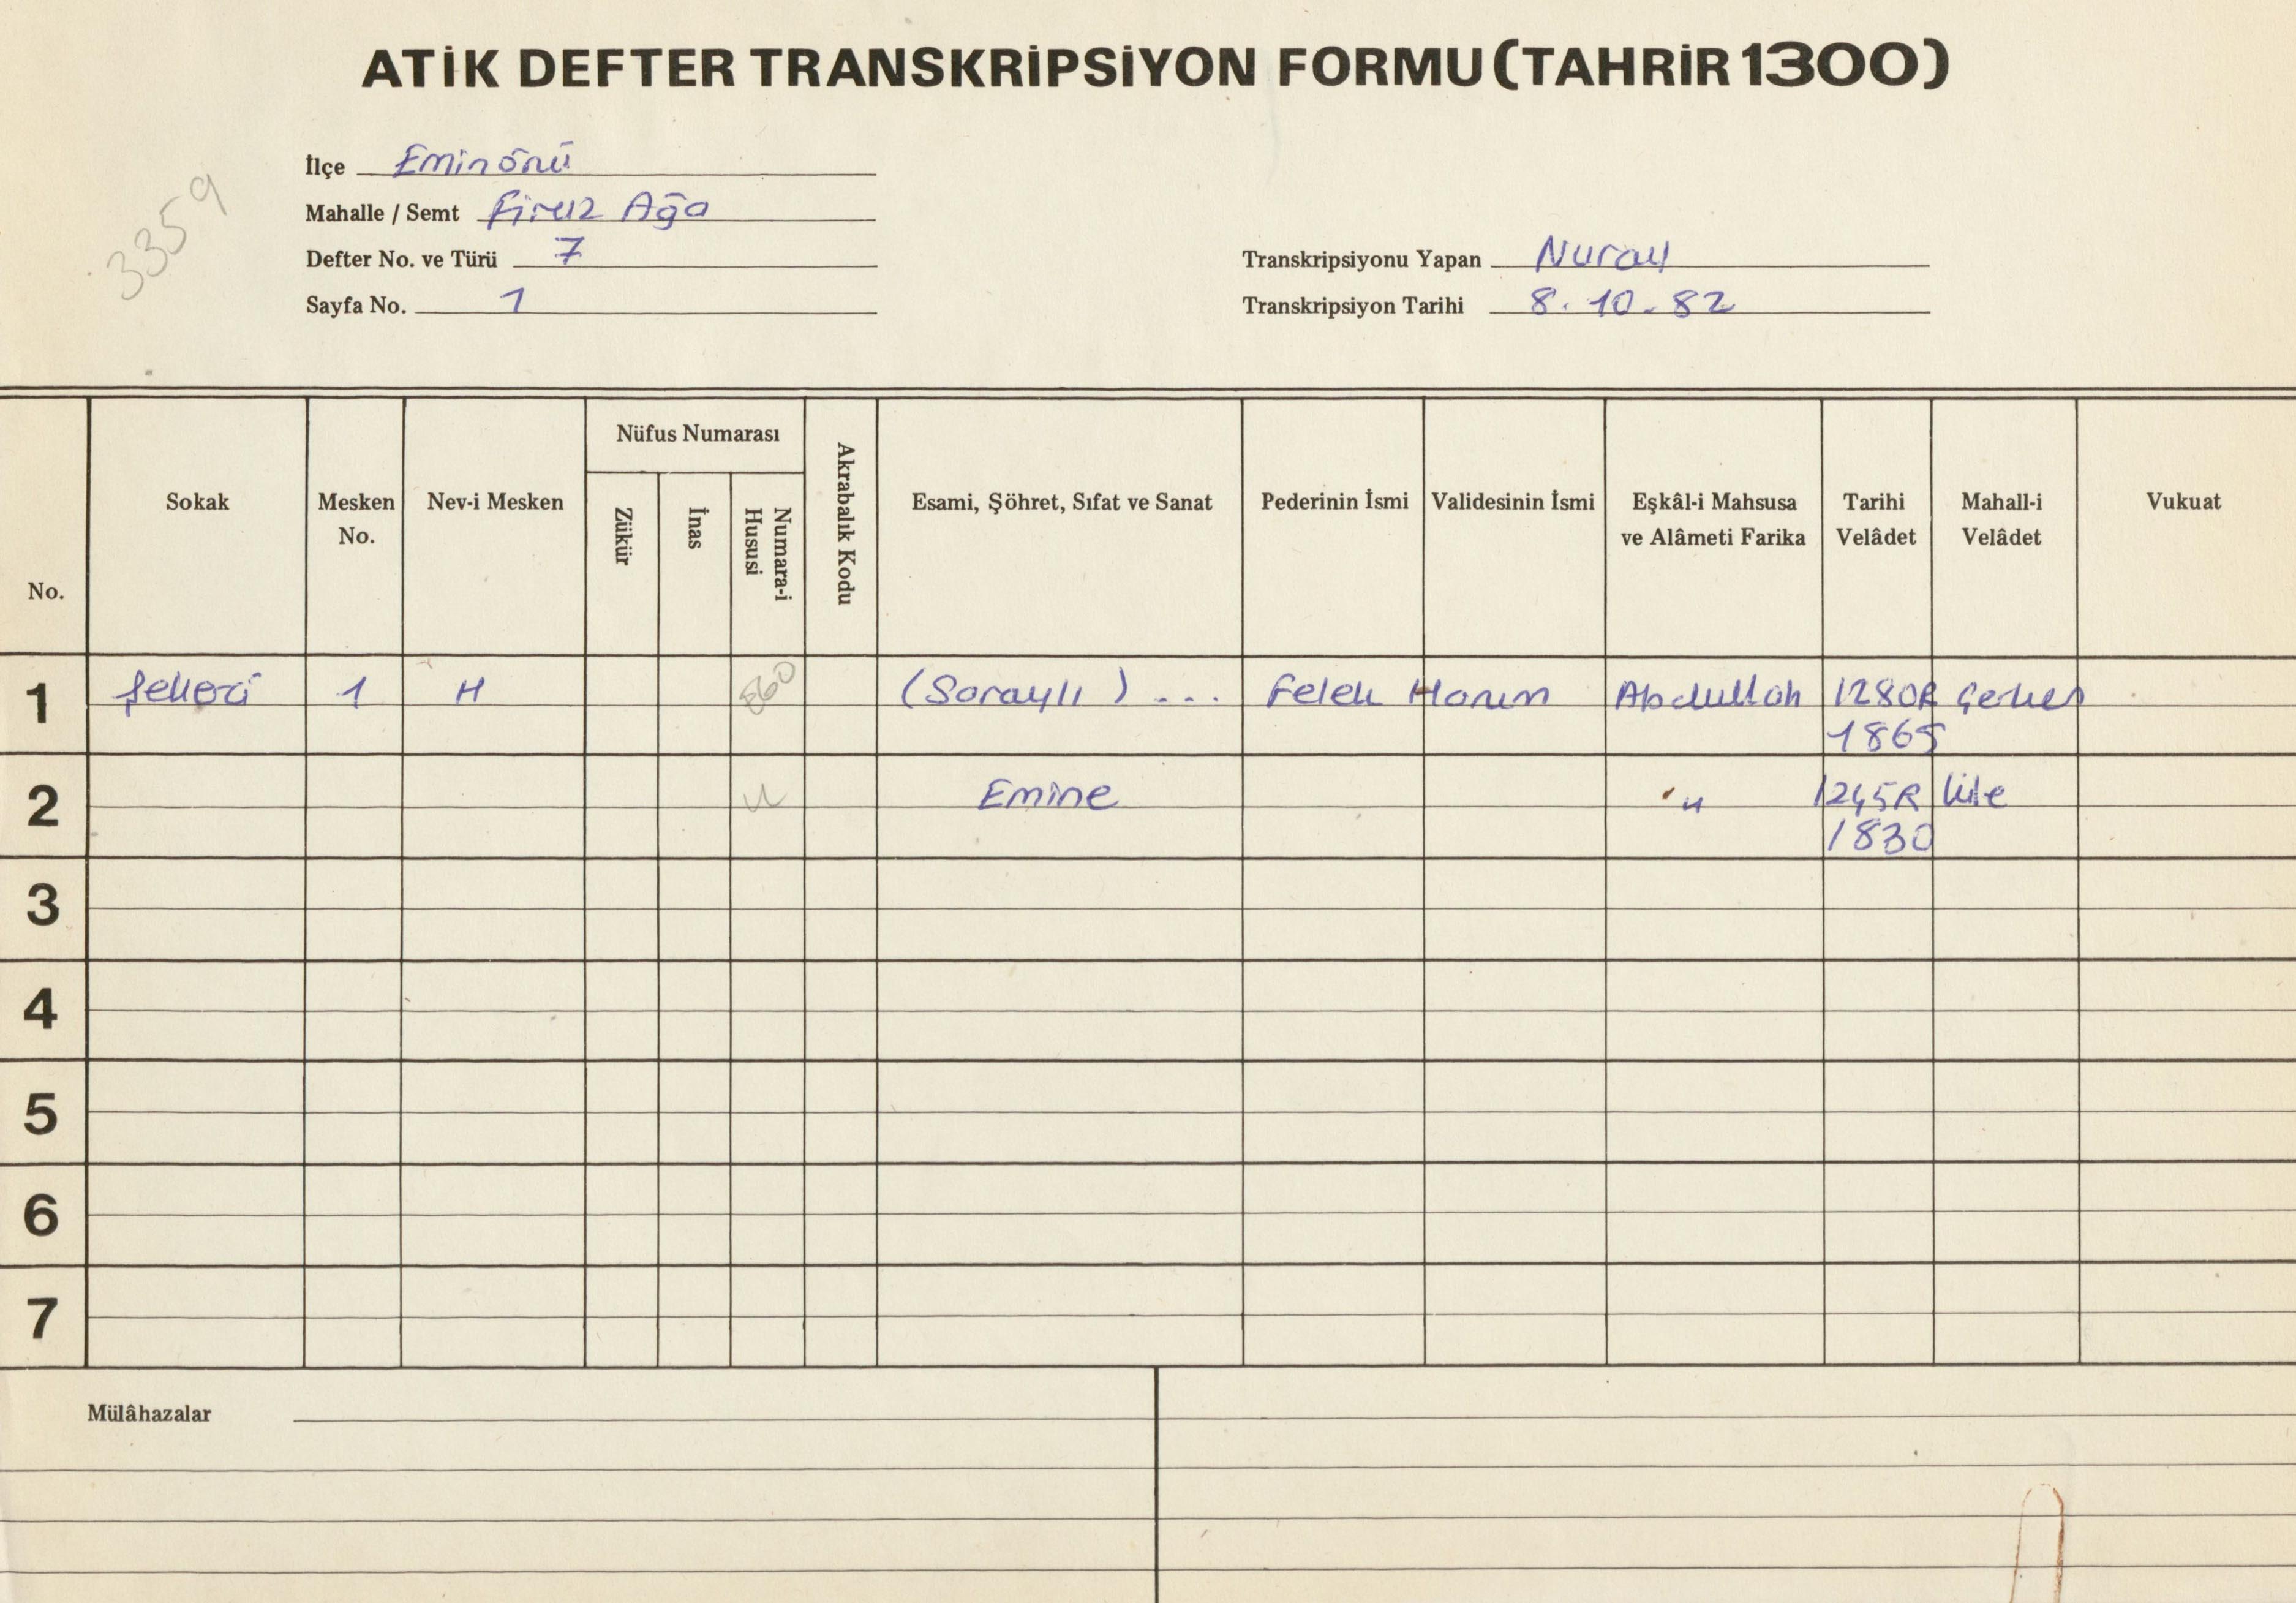 ATİK DEFTER TRANSKRİPSİYON FORMU (TAHRİR 1300)
3359
İlçe Eminönü
Mahalle / Semt Firuz Ağa
Defter No. ve Türü 7
Sayfa No. 1
Transkripsiyonu Yapan Nuray
Transkripsiyon Tarihi 8.10.82
No. Sokak Mesken No. Nev-i Mesken Nüfus Numarası Zükür İnas Numara-i Hususi Akrabalık Kodu Esami, Şöhret, Sıfat ve Sanat Pederinin İsmi Validesinin İsmi Eşkâl-i Mahsusa ve Alâmeti Farika Tarihi Velâdet Mahall-i Velâdet Vukuat
1 Şekerci 1 H 860 (Saraylı) ... Felek Hanım Abdullah 1280R Çerkes
1865
2 " Emine " 1245R
1830
3
4
5
6
7
Mülâhazalar